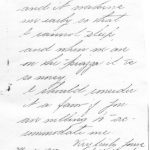 and it
me early so that
I cannot sleep
and when we are
on the piazza it is
so
I should consider
it a favor if you
are willing to ac-
commodate me
Very truly yours